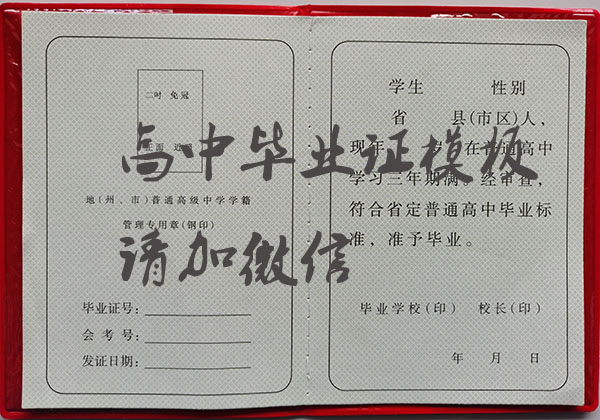 二吋 免冠
正面 近
地(州、市)普通高级中学学籍
管理专用章(钢印)
毕业证号:
会考号:
发证日期:
学生 性别
省 县(市区)人,
现年 岁,在普通高中
学习三年期满。经审查,
符合省定普通高中毕业标
准,准予毕业。
毕业学校(印) 校长(印)
年 月 日
高中毕业证模版
请加微信